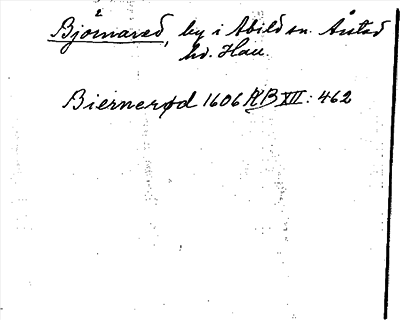 Björnared, by i Abild sn. Årstad
hd. Hall.
Biernerød 1606 KB XII: 462